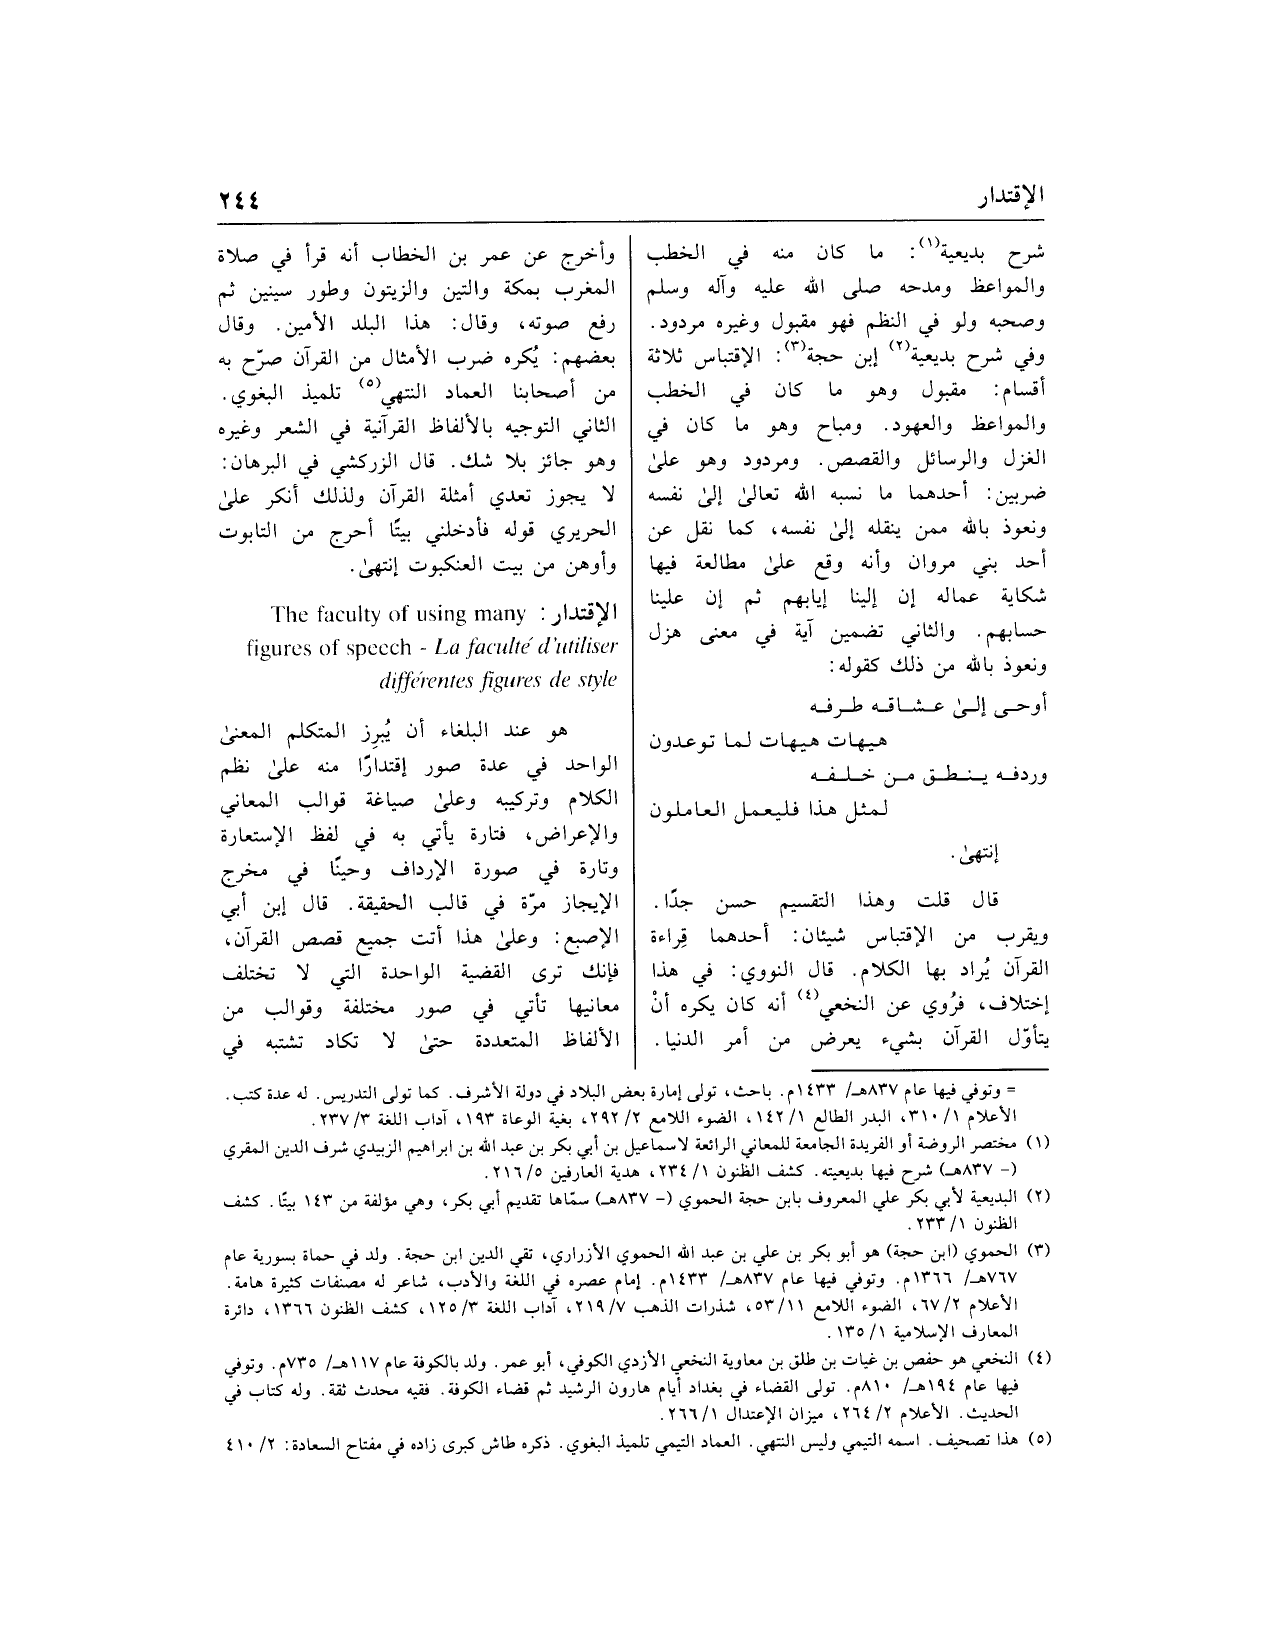 الإقتدار
٢٤٤
شرح بديعية(١): ما كان منه في الخطب
والمواعظ ومدحه صلى الله عليه وآله وسلم
وصحبه ولو في النظم فهو مقبول وغيره مردود.
وفي شرح بديعية(٢) إبن حجة(٣): الإقتباس ثلاثة
أقسام: مقبول وهو ما كان في الخطب
والمواعظ والعهود. ومباح وهو ما كان في
الغزل والرسائل والقصص. ومردود وهو علىٰ
ضربين: أحدهما ما نسبه الله تعالىٰ إلىٰ نفسه
ونعوذ بالله ممن ينقله إلىٰ نفسه، كما نقل عن
أحد بني مروان وأنه وقع علىٰ مطالعة فيها
شكاية عماله إن إلينا إيابهم ثم إن علينا
حسابهم. والثاني تضمين آية في معنى هزل
ونعوذ بالله من ذلك كقوله:
أوحى إلىٰ عشاقه طرفه
هيهات هيهات لما توعدون
وردفه ينطق من خلفه
لمثل هذا فليعمل العاملون
إنتهىٰ.
قال قلت وهذا التقسيم حسن جدًا.
ويقرب من الإقتباس شيئان: أحدهما قِراءة
القرآن يُراد بها الكلام. قال النووي: في هذا
إختلاف، فرُوي عن النخعي(٤) أنه كان يكره أنْ
يتأوّل القرآن بشيء يعرض من أمر الدنيا.
وأخرج عن عمر بن الخطاب أنه قرأ في صلاة
المغرب بمكة والتين والزيتون وطور سينين ثم
رفع صوته، وقال: هذا البلد الأمين. وقال
بعضهم: يُكره ضرب الأمثال من القرآن صرّح به
من أصحابنا العماد النتهي(٥) تلميذ البغوي.
الثاني التوجيه بالألفاظ القرآنية في الشعر وغيره
وهو جائز بلا شك. قال الزركشي في البرهان:
لا يجوز تعدي أمثلة القرآن ولذلك أنكر علىٰ
الحريري قوله فأدخلني بيتًا أحرج من التابوت
وأوهن من بيت العنكبوت إنتهىٰ.
الإقتدار : The faculty of using many
figures of speech - La faculté d'utiliser
différentes figures de style
هو عند البلغاء أن يُبرِز المتكلم المعنىٰ
الواحد في عدة صور إقتدارًا منه علىٰ نظم
الكلام وتركيبه وعلىٰ صياغة قوالب المعاني
والإعراض، فتارة يأتي به في لفظ الإستعارة
وتارة في صورة الإرداف وحينًا في مخرج
الإيجاز مرّة في قالب الحقيقة. قال إبن أبي
الإصبع: وعلىٰ هذا أتت جميع قصص القرآن،
فإنك ترى القضية الواحدة التي لا تختلف
معانيها تأتي في صور مختلفة وقوالب من
الألفاظ المتعددة حتىٰ لا تكاد تشتبه في
= وتوفي فيها عام ٨٣٧هـ/ ١٤٣٣م. باحث، تولى إمارة بعض البلاد في دولة الأشرف. كما تولى التدريس. له عدة كتب.
الأعلام ١/ ٣١٠، البدر الطالع ١/ ١٤٢، الضوء اللامع ٢/ ٢٩٢، بغية الوعاة ١٩٣، آداب اللغة ٣/ ٢٣٧.
(١) مختصر الروضة أو الفريدة الجامعة للمعاني الرائعة لاسماعيل بن أبي بكر بن عبد الله بن ابراهيم الزبيدي شرف الدين المقري
(- ٨٣٧هـ) شرح فيها بديعيته. كشف الظنون ١/ ٢٣٤، هدية العارفين ٥/ ٢١٦.
(٢) البديعية لأبي بكر علي المعروف بابن حجة الحموي (- ٨٣٧هـ) سمّاها تقديم أبي بكر، وهي مؤلفة من ١٤٣ بيتًا. كشف
الظنون ١/ ٢٣٣.
(٣) الحموي (ابن حجة) هو أبو بكر بن علي بن عبد الله الحموي الأزراري، تقي الدين ابن حجة. ولد في حماة بسورية عام
٧٦٧هـ/ ١٣٦٦م. وتوفي فيها عام ٨٣٧هـ/ ١٤٣٣م. إمام عصره في اللغة والأدب، شاعر له مصنفات كثيرة هامة.
الأعلام ٢/ ٦٧، الضوء اللامع ١١/ ٥٣، شذرات الذهب ٧/ ٢١٩، آداب اللغة ٣/ ١٢٥، كشف الظنون ١٣٦٦، دائرة
المعارف الإسلامية ١/ ١٣٥.
(٤) النخعي هو حفص بن غياث بن طلق بن معاوية النخعي الأزدي الكوفي، أبو عمر. ولد بالكوفة عام ١١٧هـ/ ٧٣٥م. وتوفي
فيها عام ١٩٤هـ/ ٨١٠م. تولى القضاء في بغداد أيام هارون الرشيد ثم قضاء الكوفة. فقيه محدث ثقة. وله كتاب في
الحديث. الأعلام ٢/ ٢٦٤، ميزان الإعتدال ١/ ٢٦٦.
(٥) هذا تصحيف. اسمه التيمي وليس النتهي. العماد التيمي تلميذ البغوي. ذكره طاش كبرى زاده في مفتاح السعادة: ٢/ ٤١٠